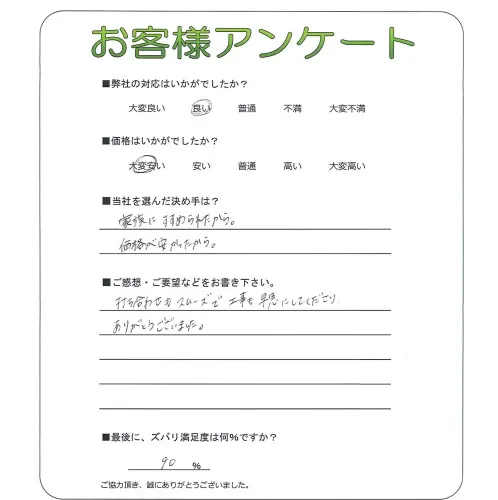 お客様アンケート
■弊社の対応はいかがでしたか？
大変良い 良い 普通 不満 大変不満
■価格はいかがでしたか？
大変安い 安い 普通 高い 大変高い
■当社を選んだ決め手は？
家族にすすめられたから。
価格が安かったから。
■ご感想・ご要望などをお書き下さい。
打ち合わせもスムーズで工事も早急にしてくださり
ありがとうございました。
■最後に、ズバリ満足度は何%ですか？
90 %
ご協力頂き、誠にありがとうございました。